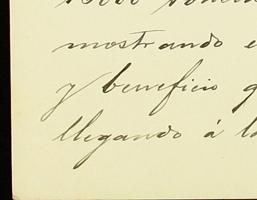 mostrando e
y beneficio q
llegando á la